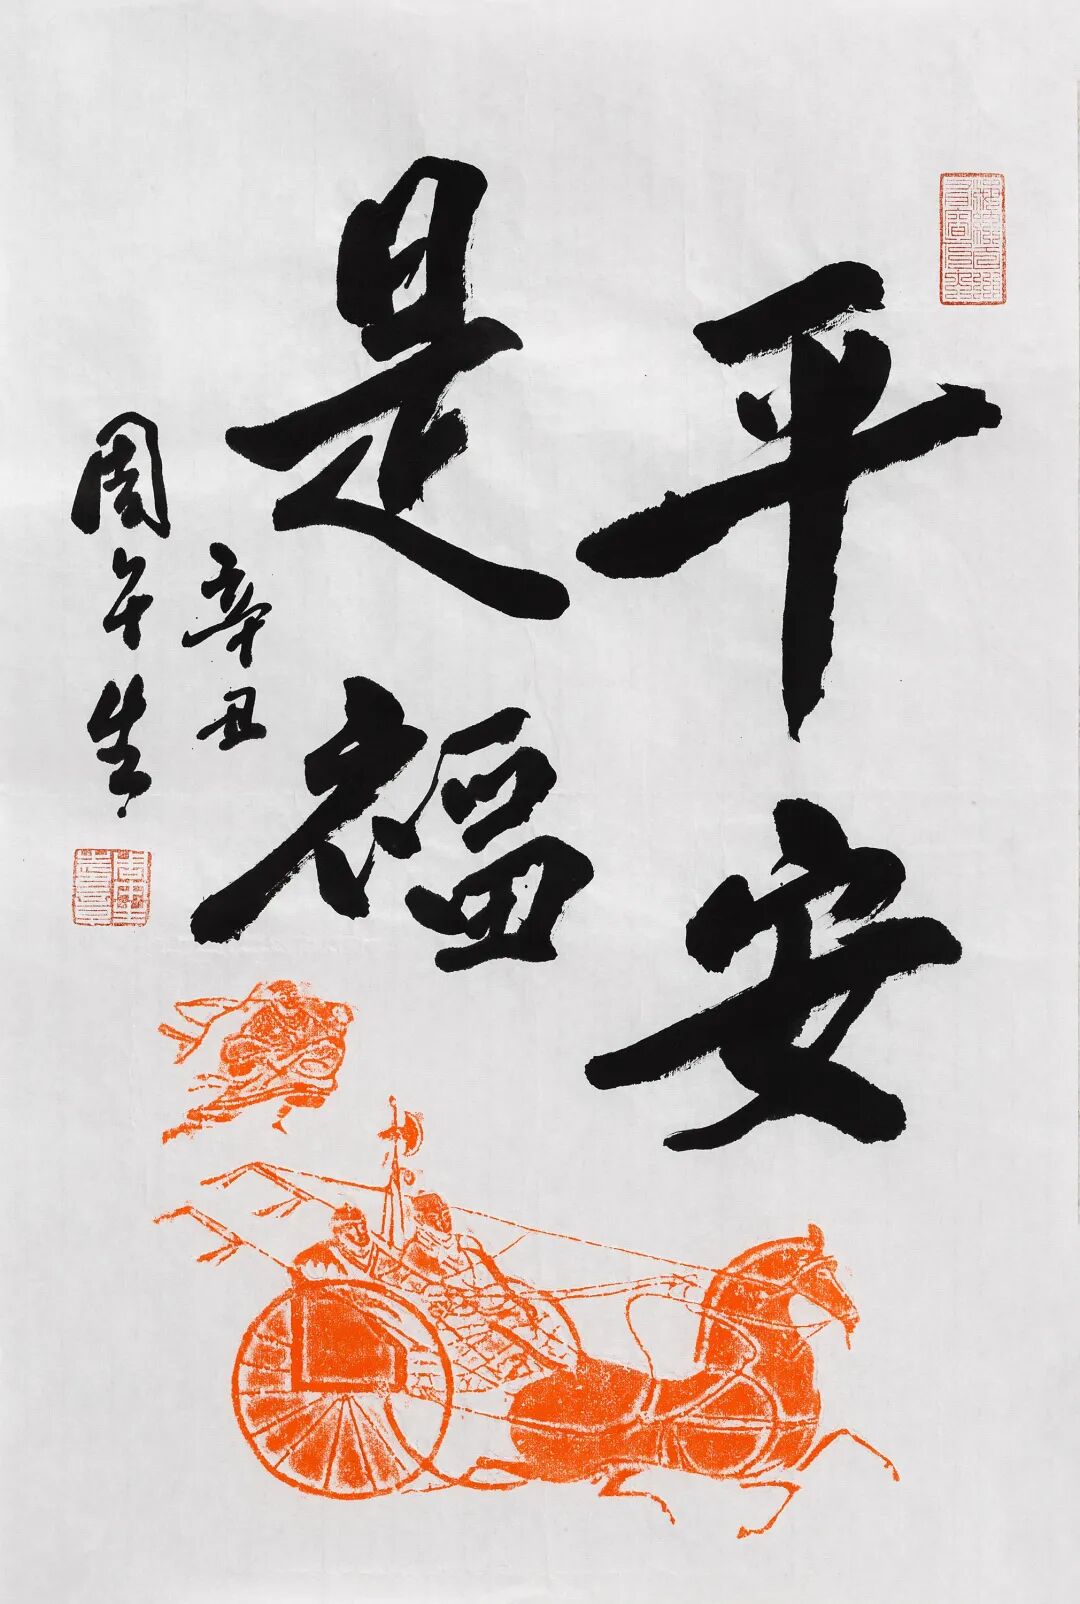 平安
是福
辛丑
周午生